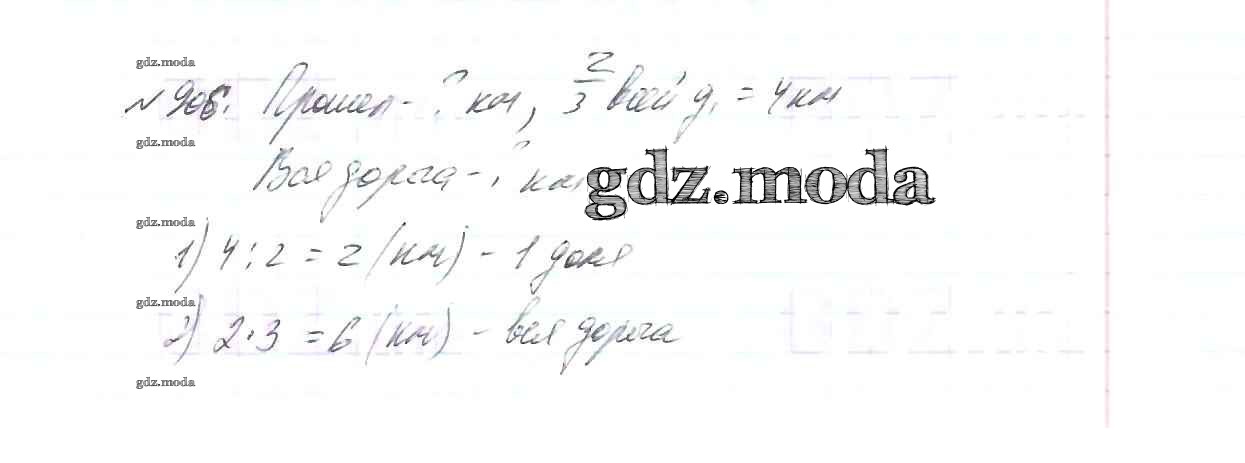 gdz.moda
№ 906. Прошел - ? км, 2/3 всей д. = 4 км
gdz.moda
Вся дорога - ? км
gdz.moda
gdz.moda
1) 4 : 2 = 2 (км) - 1 доля
gdz.moda
2) 2 · 3 = 6 (км) - вся дорога
gdz.moda